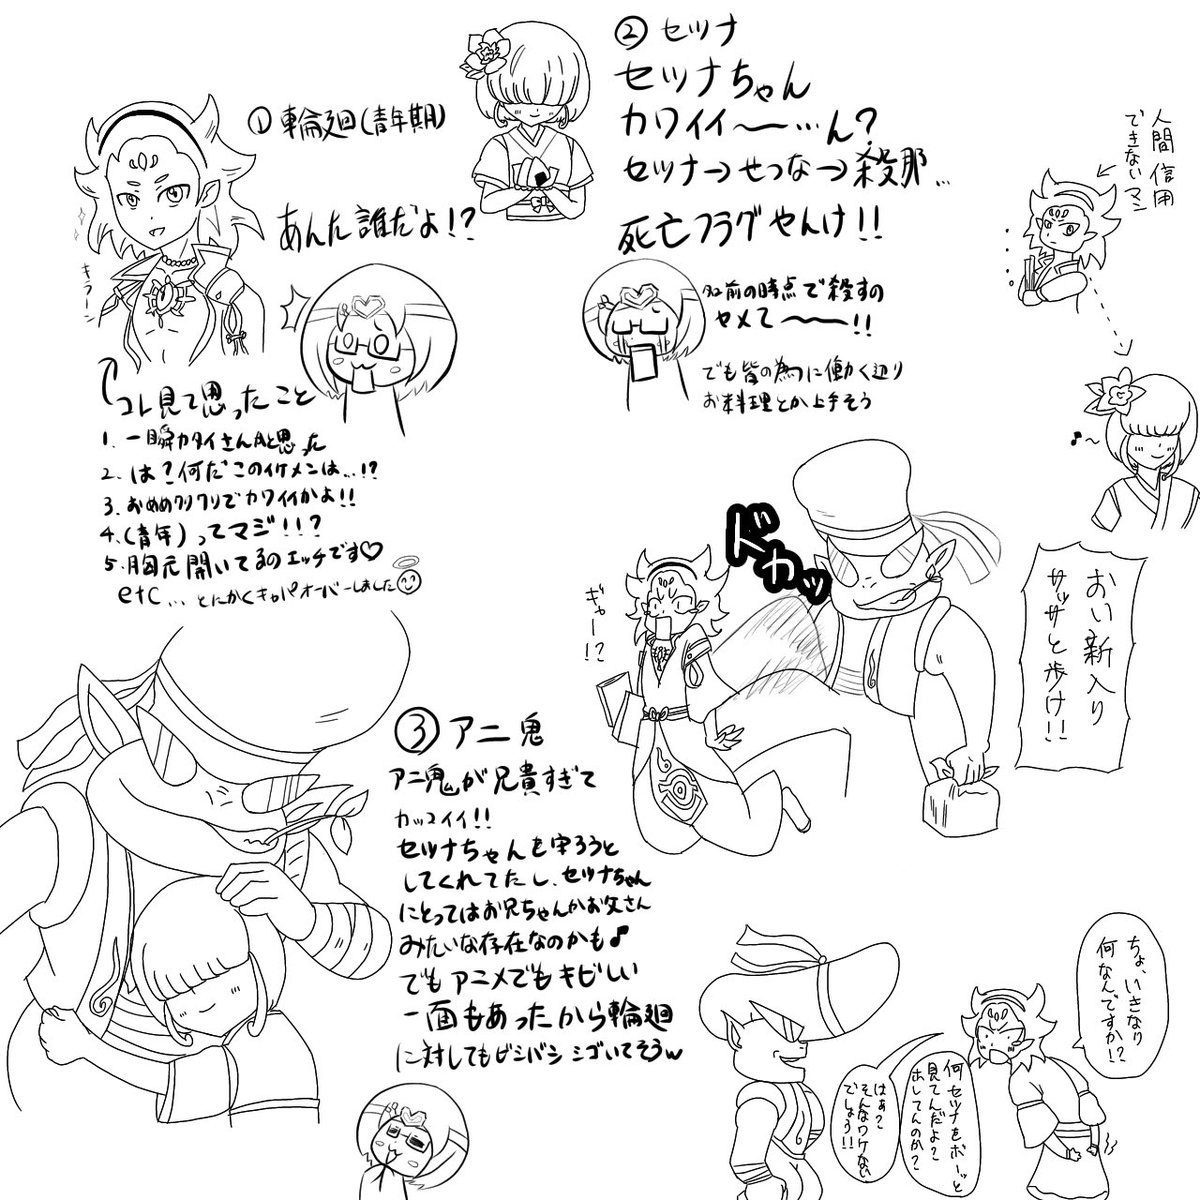 ①輪廻(青年期)
あんた誰だよ!?
キラーン
コレ見て思ったこと
1. 一瞬カタイさんAと思った
2. は?何だこのイケメンは…!?
3. おめめクリクリでカワイイかよ!!
4. (青年)ってマジ!!?
5. 胸元開いてるのエッチです♡
etc… とにかくキャパオーバーしました
②セツナ
セツナちゃん
カワイイ〜〜…ん?
セツナ→せつな→殺那…
死亡フラグやんけ!!
名前の時点で殺すの
ヤメて〜〜〜!!
でも皆の為に働く辺り
お料理とか上手そう
人間信用
できないマン
♪〜
ドカッ
ギャー!?
おい新入り
サッサと歩け!!
③アニ鬼
アニ鬼が兄貴すぎて
カッコイイ!!
セツナちゃんを守ろうと
してくれてたし、セツナちゃん
にとってはお兄ちゃんかお父さん
みたいな存在なのかも♪
でもアニメでもキビしい
一面もあったから輪廻
に対してもビシバシシゴいてそうw
ちょ、いきなり
何なんですか!?
何セツナをボーッと
見てんだよ?
ホレてんのか?
はぁ?
そんなワケない
でしょう!!